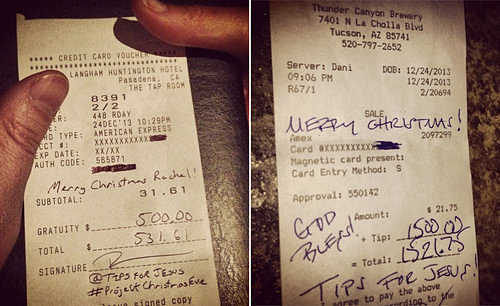 ***** CREDIT CARD VOUCHER *****
LANGHAM HUNTINGTON HOTEL
Pasadena, CA
THE TAP ROOM
8391
2/2
448 RDAY
24DEC'13 10:25PM
CARD TYPE: AMERICAN EXPRESS
ACCT #: XXXXXXXXXXX
EXP DATE: XX/XX
AUTH CODE: 565871
Merry Christmas Rachel!
SUBTOTAL: 31.61
GRATUITY $ 500.00
TOTAL $ 531.61
SIGNATURE
@TIPS FOR JESUS
#ProjectChristmasEve
signed copy
Thunder Canyon Brewery
7401 N La Cholla Blvd
Tucson, AZ 85741
520-797-2652
Server: Dani DOB: 12/24/2013
09:06 PM 12/24/2013
R67/1 2/20694
SALE
MERRY CHRISTMAS!
Amex 2097299
Card #XXXXXXXXXXX
Magnetic card present:
Card Entry Method: S
Approval: 550142
GOD BLESS!
Amount: $ 21.75
+ Tip: 1500.00
= Total: 1521.75
TIPS FOR JESUS!
agree to pay the above
according to the